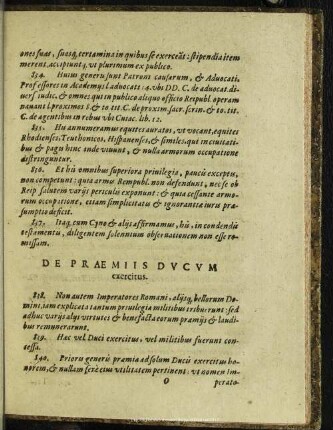 ones suas, suasq́; certamina in quibus se exercēt: stipendia item
merent, accipiuntq́; ut plurimum ex publico.
834. Huius generis sunt Patroni causarum, & Advocati.
Professores in Academijs l. advocati 14. ubi DD. C. de advocat. di-
vers. iudic. & omnes qui in publico aliquo officio Reipubl. operam
navant l. proximos 5. & to tit. C. de proxim. sacr. scrin. & to. tit.
C. de agentibus in rebus ubi Cuiac. lib. 12.
835. His annumeramus equites auratos, ut vocant, equites
Rhodienses, Teuthonicos, Hispanenses, & similes, qui in civitati-
bus & pagis hinc inde vivunt, & nulla armorum occupatione
destringuntur.
836. Et his omnibus superiora privilegia, paucis exceptis,
non competunt: quia armis Rempubl. non defendunt, nec se ob
Reip salutem varijs periculis exponunt: & quia cessante armo-
rum occupatione, etiam simplicitatis & ignorantiæ iuris præ-
sumptio deficit.
837. Itaq́; cum Cyno & alijs affirmamus, his, in condendis
testamentis, diligentem solennium observationem non esse re-
missam.
DE PRAEMIIS DVCVM
exercitus.
838. Non autem Imperatores Romani, alijsq́; bellorum Do-
mini, iam explicata tantum privilegia militibus tribuerunt: sed
adhuc varijs alijs virtutes & benefacta eorum præmijs & laudi-
bus remunerarunt.
839. Hæc vel Duci exercitus, vel militibus fuerunt con-
cessa.
840. Prioris generis præmia ad solum Ducis exercitus ho-
norem, & nullam ferè eius utilitatem pertinent: ut nomen Im-
O
perato-